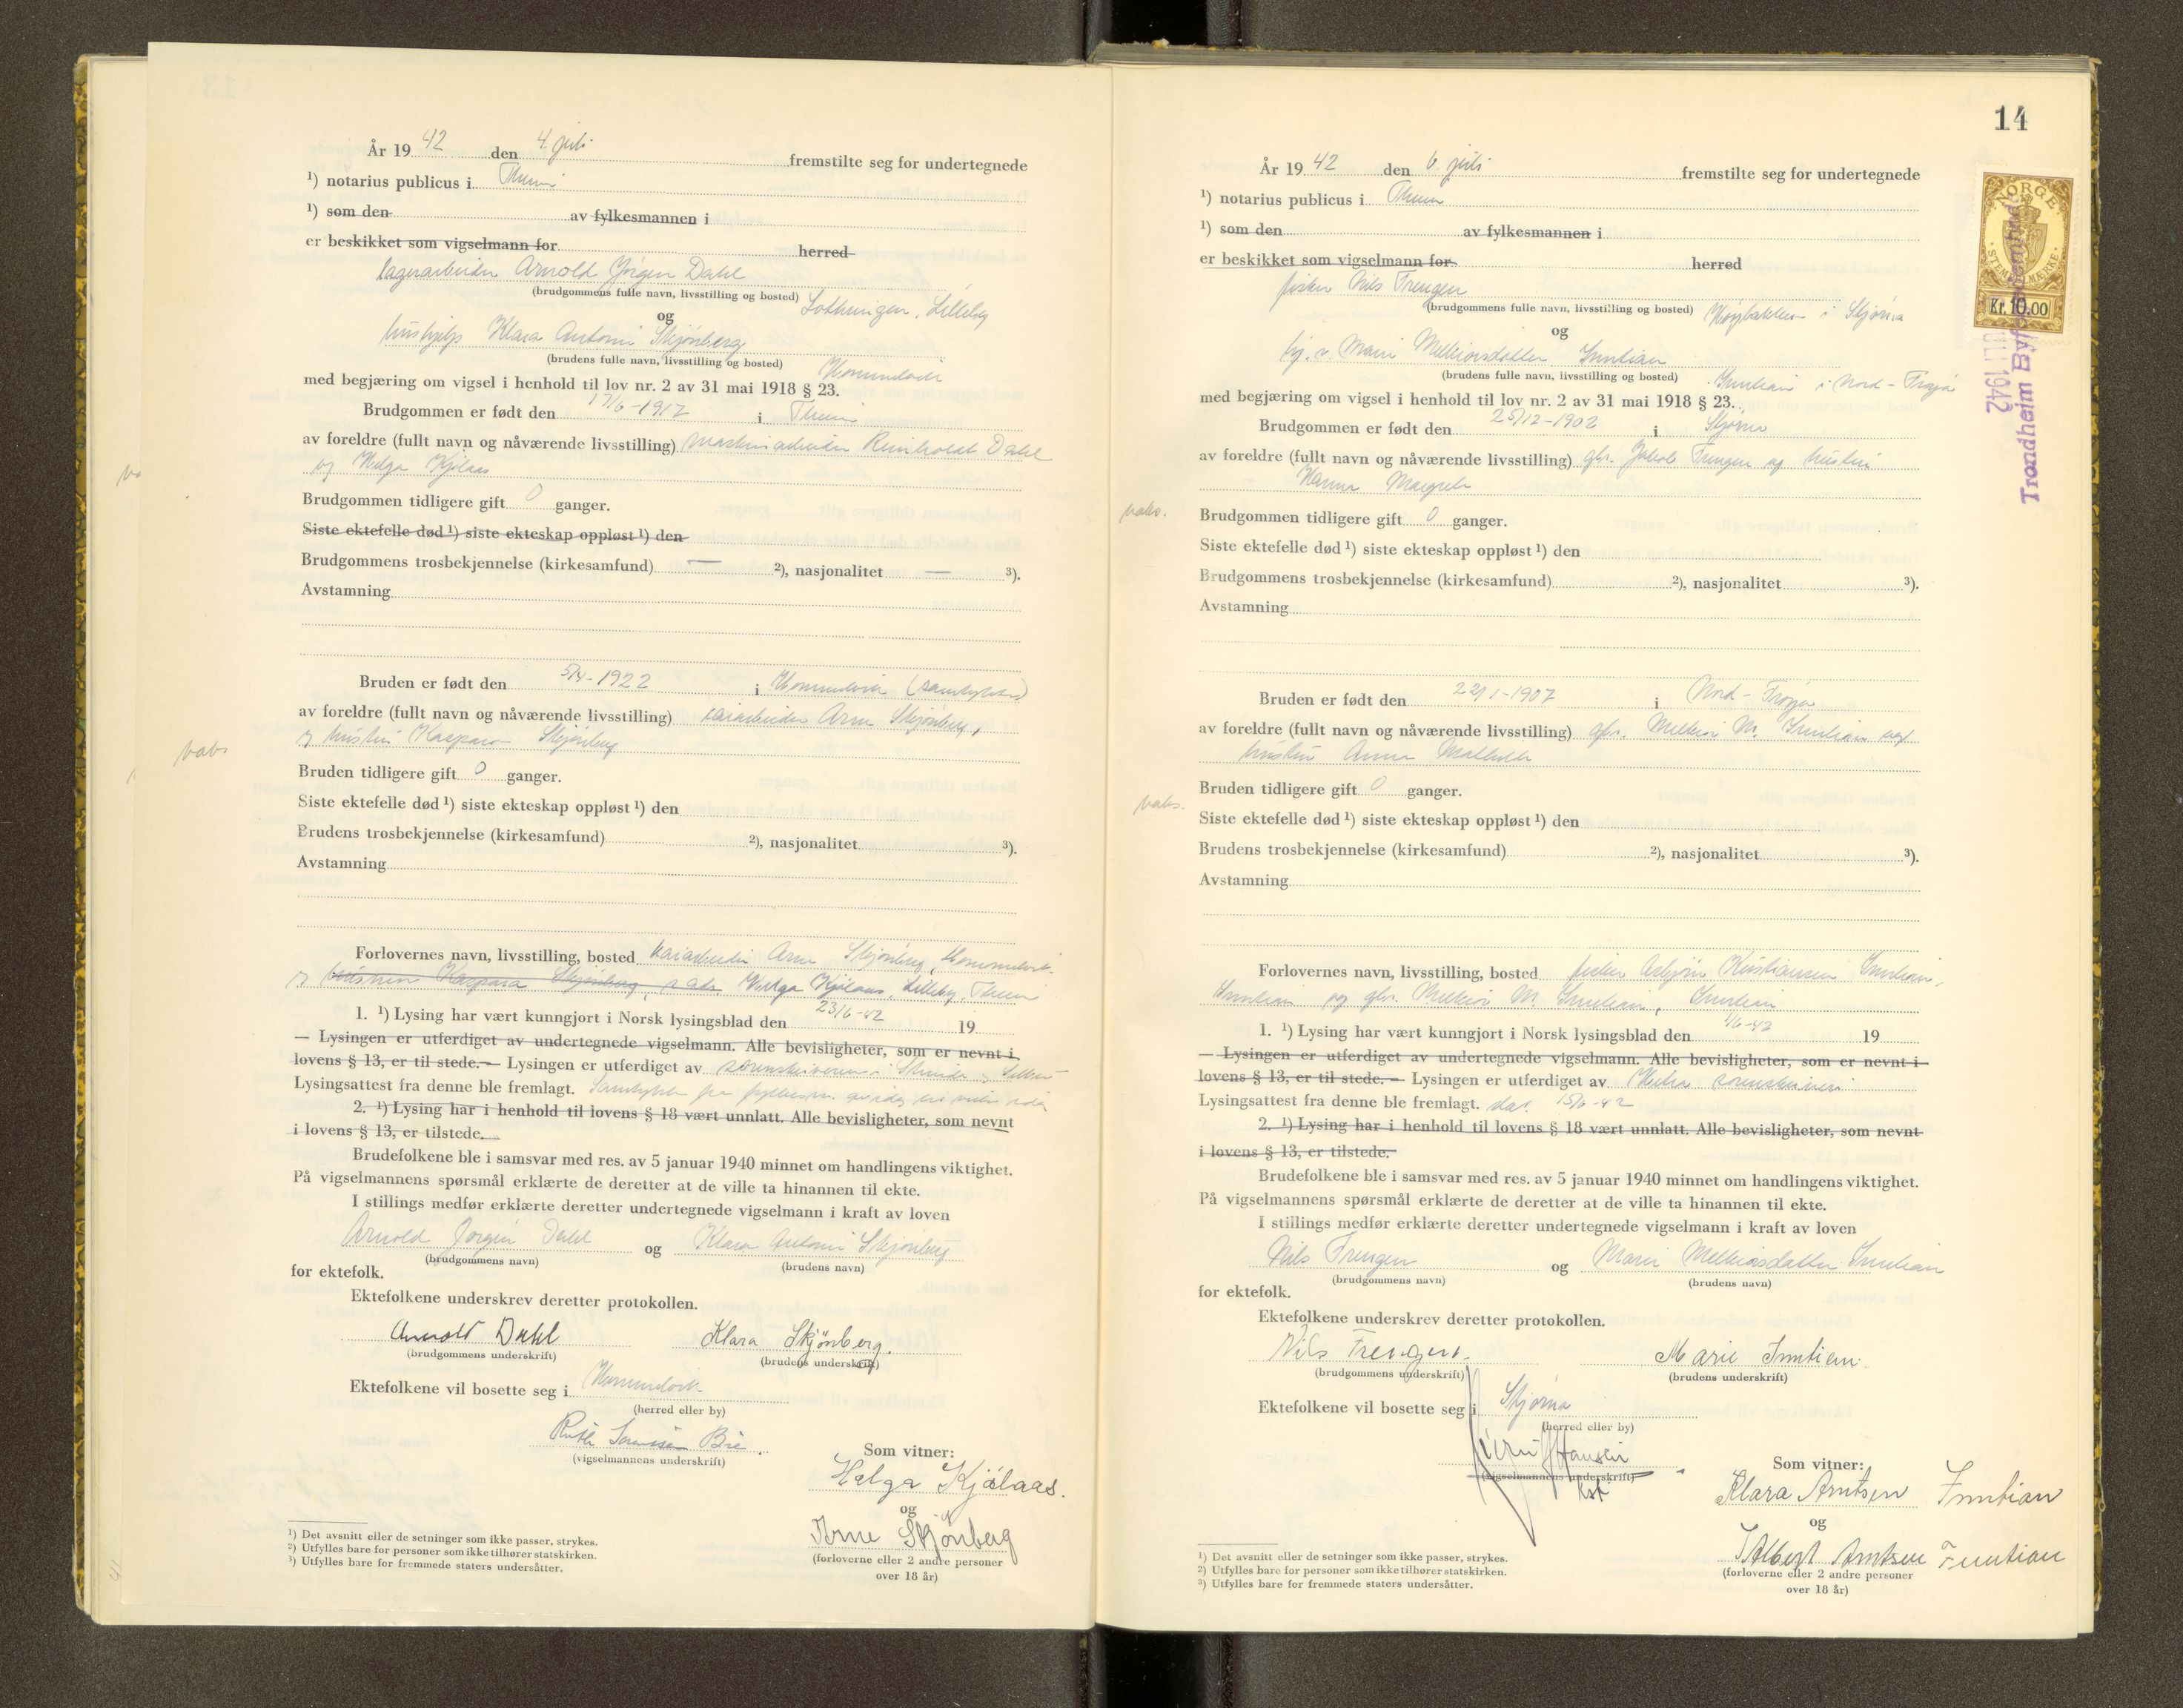 År 19 42 den 4. juli fremstilte seg for undertegnede
¹) notarius publicus i Thrm
¹) som den av fylkesmannen i
er beskikket som vigselmann for herred
lagerarbeider Arnold Jørgen Dahl
(brudgommens fulle navn, livsstilling og bosted) Lothringen, Lilleby
og
hushjelp Klara Antoni Skjønberg
(brudens fulle navn, livsstilling og bosted) Hommelvik
med begjæring om vigsel i henhold til lov nr. 2 av 31 mai 1918 § 23.
Brudgommen er født den 17/6-1917 i Thrm
av foreldre (fullt navn og nåværende livsstilling) maskinarbeider Reinholdt Dahl
og Helga Kjølaas
Brudgommen tidligere gift 0 ganger.
Siste ektefelle død ¹) siste ekteskap oppløst ¹) den
Brudgommens trosbekjennelse (kirkesamfund) — ²), nasjonalitet — ³).
Avstamning
Bruden er født den 5/4-1922 i Hommelvik (samtykke)
av foreldre (fullt navn og nåværende livsstilling) kaiarbeider Arne Skjønberg,
og hustru Kaspara Skjønberg
vabs
Bruden tidligere gift 0 ganger.
Siste ektefelle død ¹) siste ekteskap oppløst ¹) den
Brudens trosbekjennelse (kirkesamfund) ²), nasjonalitet ³).
Avstamning
Forlovernes navn, livsstilling, bosted kaiarbeider Arne Skjønberg, Hommelvik
og hustruen Kaspara Skjønberg, s.ads. Helga Kjølaas, Lilleby, Thrm
1. ¹) Lysing har vært kunngjort i Norsk lysingsblad den 23/6-42 19
— Lysingen er utferdiget av undertegnede vigselmann. Alle bevisligheter, som er nevnt i
lovens § 13, er til stede. — Lysingen er utferdiget av sorenskriveren i Strinda og Selbu
Lysingsattest fra denne ble fremlagt. Samtykke fra fylkesm.
2. ¹) Lysing har i henhold til lovens § 18 vært unnlatt. Alle bevisligheter, som nevnt
i lovens § 13, er tilstede.
Brudefolkene ble i samsvar med res. av 5 januar 1940 minnet om handlingens viktighet.
På vigselmannens spørsmål erklærte de deretter at de ville ta hinannen til ekte.
I stillings medfør erklærte deretter undertegnede vigselmann i kraft av loven
Arnold Jørgen Dahl og Klara Antoni Skjønberg
(brudgommens navn) (brudens navn)
for ektefolk.
Ektefolkene underskrev deretter protokollen.
Arnold Dahl Klara Skjønberg.
(brudgommens underskrift) (brudens underskrift)
Ektefolkene vil bosette seg i Hommelvik
(herred eller by)
Ruth
(vigselmannens underskrift)
Som vitner:
Helga Kjølaas.
og
Arne Skjønberg
(forloverne eller 2 andre personer
over 18 år)
¹) Det avsnitt eller de setninger som ikke passer, strykes.
²) Utfylles bare for personer som ikke tilhører statskirken.
³) Utfylles bare for fremmede staters undersåtter.
14
NORGE
STEMPELMERKE
Kr. 10.00
Trondheim
1942
År 19 42 den 6. juli fremstilte seg for undertegnede
¹) notarius publicus i Thrm
¹) som den av fylkesmannen i
er beskikket som vigselmann for herred
fisker Nils Frengen
(brudgommens fulle navn, livsstilling og bosted) Høybakken i Stjørna
og
hj.v. Marie Melkiorsdatter Inntian
(brudens fulle navn, livsstilling og bosted) Inntian i Nord-Frøya
med begjæring om vigsel i henhold til lov nr. 2 av 31 mai 1918 § 23.
Brudgommen er født den 25/12-1902 i Stjørna
av foreldre (fullt navn og nåværende livsstilling) gbr. Jakob Frengen og hustru
Hanna Margrete
vabs.
Brudgommen tidligere gift 0 ganger.
Siste ektefelle død ¹) siste ekteskap oppløst ¹) den
Brudgommens trosbekjennelse (kirkesamfund) ²), nasjonalitet ³).
Avstamning
Bruden er født den 22/1-1907 i Nord-Frøya
av foreldre (fullt navn og nåværende livsstilling) gbr. Melkior M. Inntian og
hustru Anna Mathilde
Bruden tidligere gift 0 ganger.
vabs.
Siste ektefelle død ¹) siste ekteskap oppløst ¹) den
Brudens trosbekjennelse (kirkesamfund) ²), nasjonalitet ³).
Avstamning
Forlovernes navn, livsstilling, bosted fisker Asbjørn Kristiansen Inntian,
Inntian og gbr. Melkior M. Inntian, Inntian
1. ¹) Lysing har vært kunngjort i Norsk lysingsblad den 19
— Lysingen er utferdiget av undertegnede vigselmann. Alle bevisligheter, som er nevnt i
lovens § 13, er til stede. — Lysingen er utferdiget av Hitra sorenskriveri
Lysingsattest fra denne ble fremlagt. dat. 15/6-42
2. ¹) Lysing har i henhold til lovens § 18 vært unnlatt. Alle bevisligheter, som nevnt
i lovens § 13, er tilstede.
Brudefolkene ble i samsvar med res. av 5 januar 1940 minnet om handlingens viktighet.
På vigselmannens spørsmål erklærte de deretter at de ville ta hinannen til ekte.
I stillings medfør erklærte deretter undertegnede vigselmann i kraft av loven
Nils Frengen og Marie Melkiorsdatter Inntian
(brudgommens navn) (brudens navn)
for ektefolk.
Ektefolkene underskrev deretter protokollen.
Nils Frengen. Marie Inntian.
(brudgommens underskrift) (brudens underskrift)
Ektefolkene vil bosette seg i Stjørna
(herred eller by)
Hansen
(vigselmannens underskrift)
kst
Som vitner:
Klara Arntsen Inntian
og
Albert Arntsen Inntian
(forloverne eller 2 andre personer
over 18 år)
¹) Det avsnitt eller de setninger som ikke passer, strykes.
²) Utfylles bare for personer som ikke tilhører statskirken.
³) Utfylles bare for fremmede staters undersåtter.